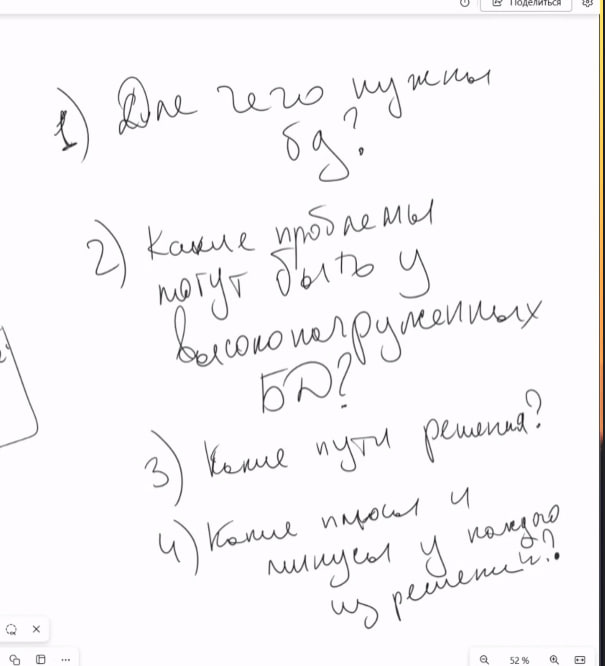 Поделиться
1) Для чего нужны
бд?
2) Какие проблемы
могут быть у
высоконагруженных
БД?
3) Какие пути решения?
4) Какие плюсы и
минусы у каждого
из решений?
52 %